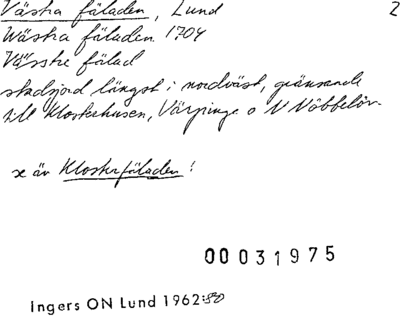 Västra fäladen, Lund 2
Wästra fäladen 1704
Västre fälad
stadsjord längst i nordväst, gränsande
till Klosterhusen, Värpinge o N Nöbbelöv.
se äv Klosterfäladen!
00031975
Ingers ON Lund 1962:80